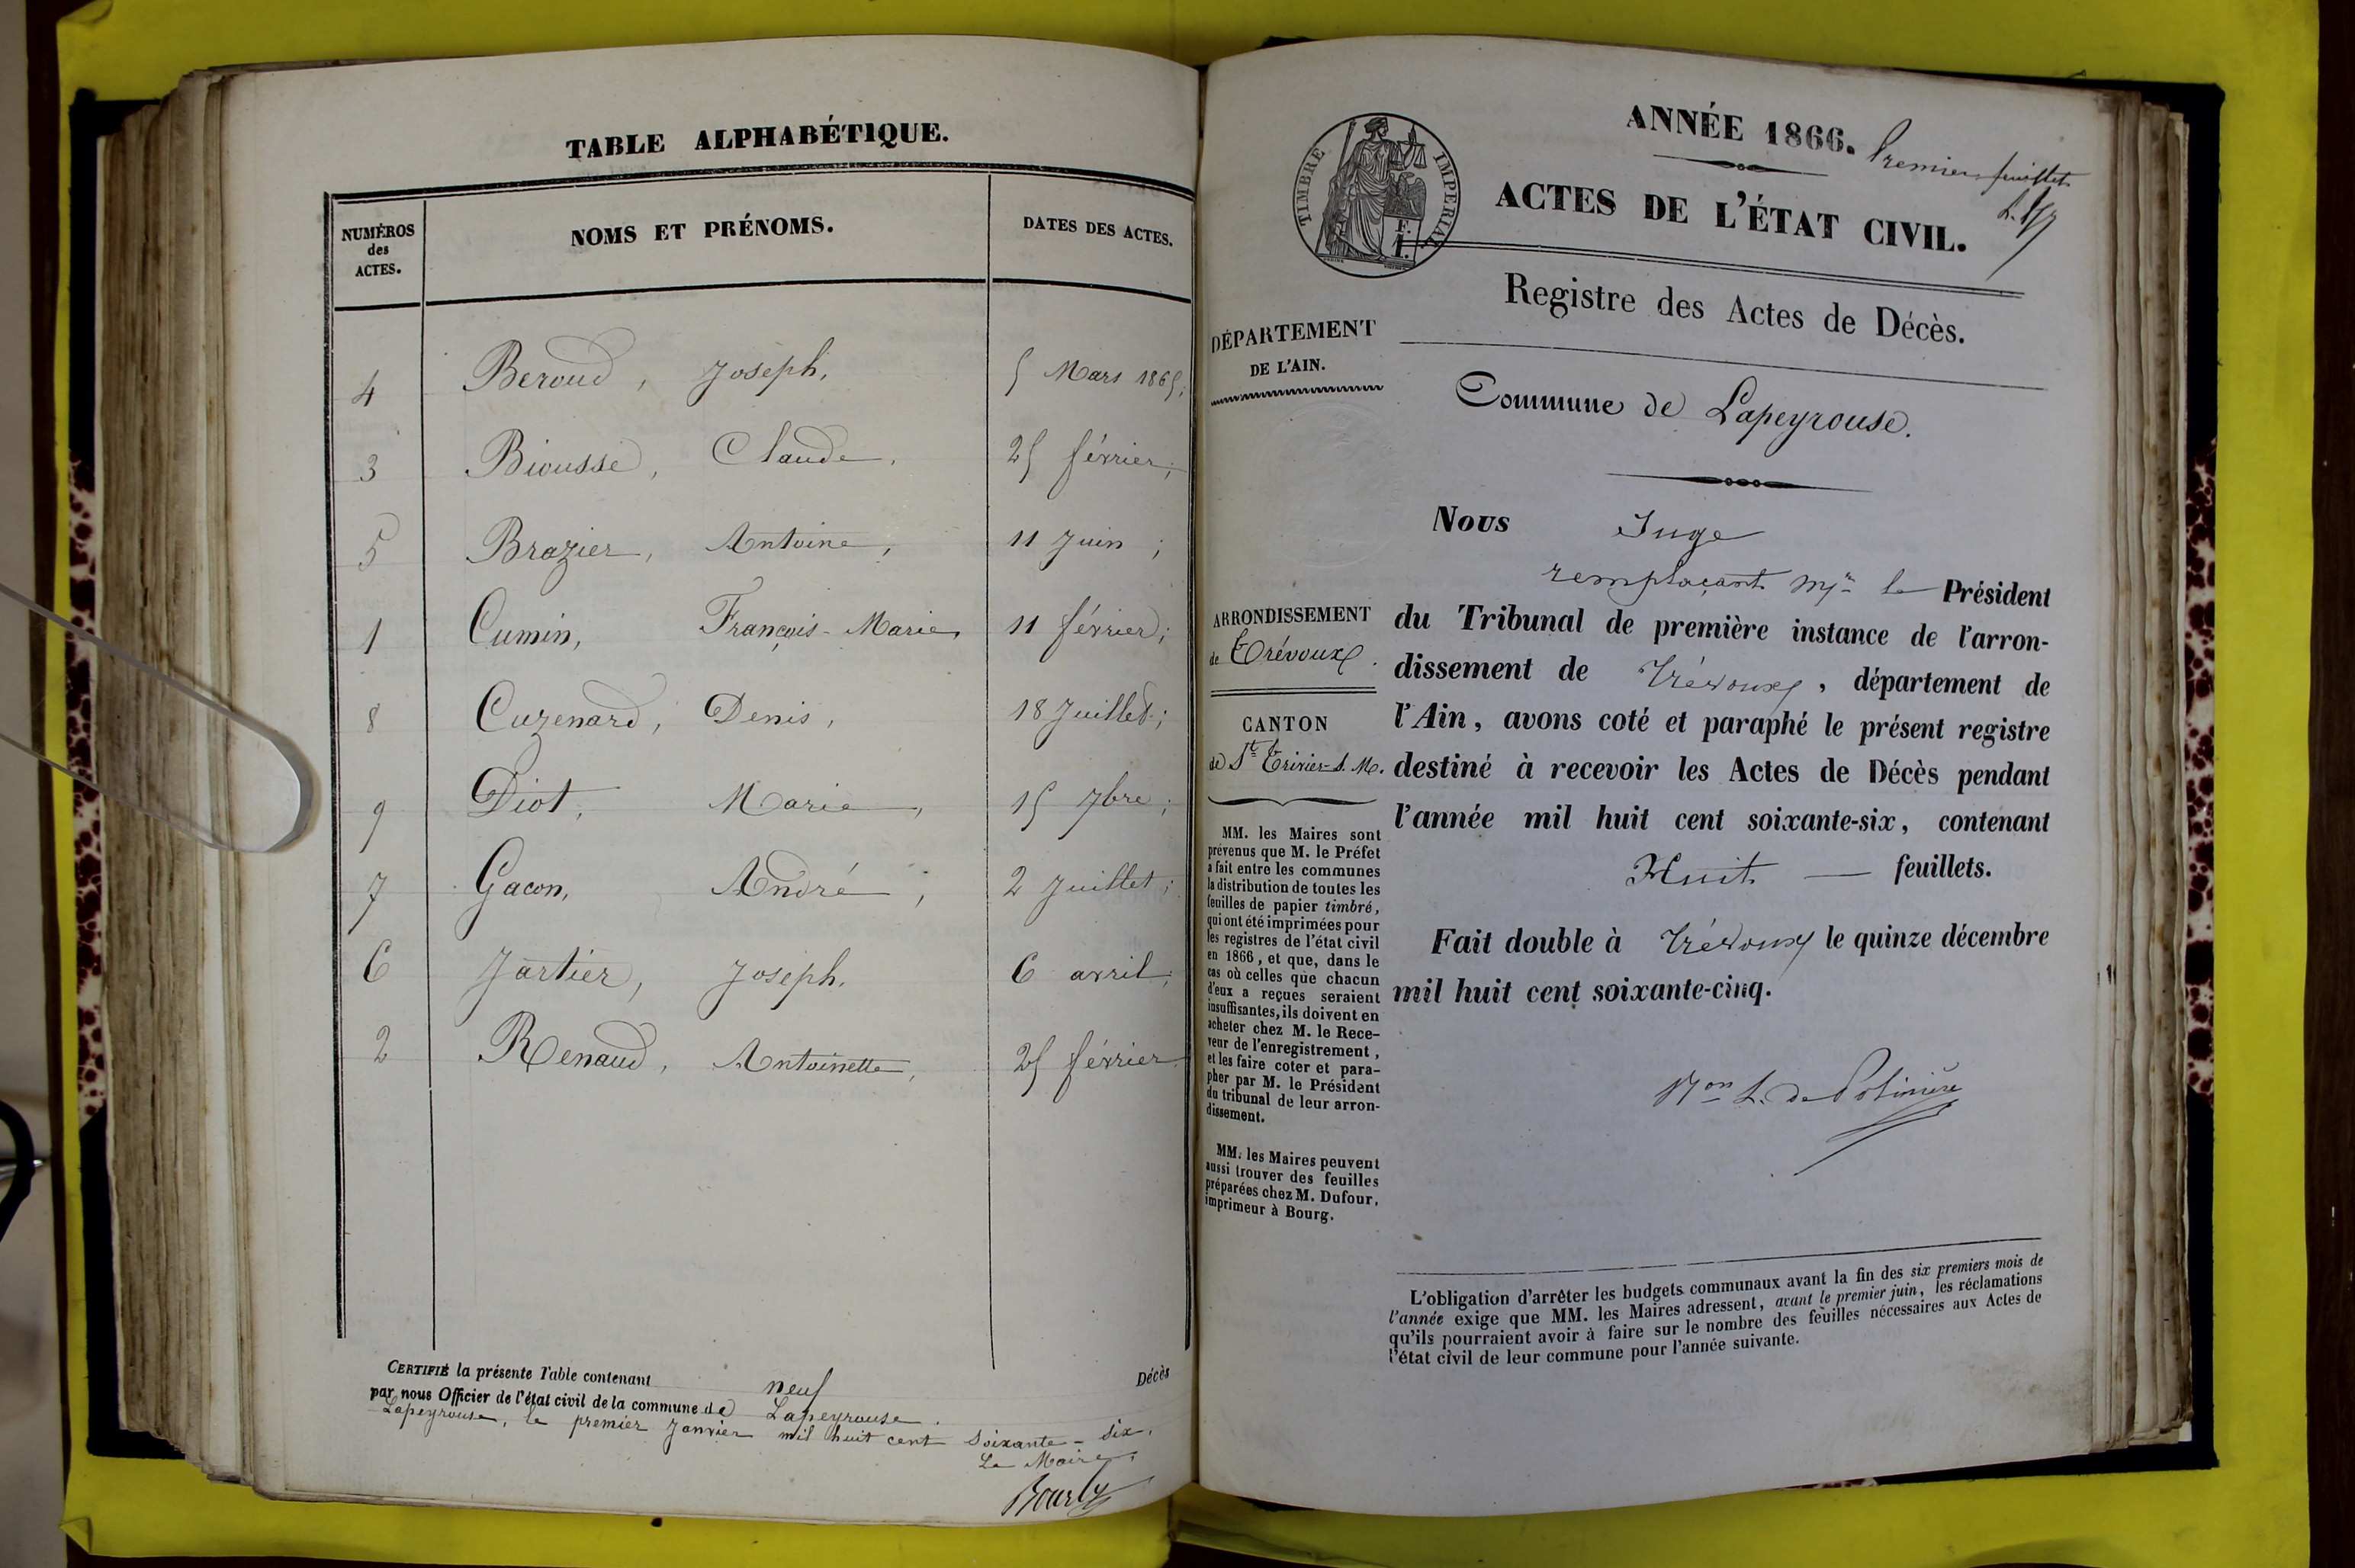 TABLE ALPHABÉTIQUE.
NUMÉROS
des
ACTES.
NOMS ET PRÉNOMS.
DATES DES ACTES.
4 Beroud, Joseph, 5 Mars 1865;
3 Biousse, Claude, 25 février;
5 Brazier, Antoine, 11 Juin;
1 Cumin, François-Marie, 11 février;
8 Cuzenard, Denis, 18 Juillet;
9 Diot, Marie, 15 7bre;
7 Gacon, André, 2 Juillet;
6 Jartier, Joseph, 6 avril;
2 Renaud, Antoinette, 25 février
CERTIFIÉ la présente Table contenant neuf Décès
par nous Officier de l'état civil de la commune de Lapeyrouse.
Lapeyrouse, le premier Janvier mil huit cent soixante-six.
Le Maire,
Bourly
ANNÉE 1866. Premier feuillet
ACTES DE L'ÉTAT CIVIL.
TIMBRE IMPÉRIAL
F.
1.
Registre des Actes de Décès.
DÉPARTEMENT
DE L'AIN.
Commune de Lapeyrouse.
ARRONDISSEMENT
de Trévoux.
CANTON
de St Trivier-s. M.
MM. les Maires sont
prévenus que M. le Préfet
a fait entre les communes
la distribution de toutes les
feuilles de papier timbré,
qui ont été imprimées pour
les registres de l'état civil
en 1866, et que, dans le
cas où celles que chacun
d'eux a reçues seraient
insuffisantes, ils doivent en
acheter chez M. le Rece-
veur de l'enregistrement,
et les faire coter et para-
pher par M. le Président
du tribunal de leur arron-
dissement.
MM. les Maires peuvent
aussi trouver des feuilles
préparées chez M. Dufour,
imprimeur à Bourg.
Nous Juge
remplaçant Mr le Président
du Tribunal de première instance de l'arron-
dissement de Trévoux, département de
l'Ain, avons coté et paraphé le présent registre
destiné à recevoir les Actes de Décès pendant
l'année mil huit cent soixante-six, contenant
Huit — feuillets.
Fait double à Trévoux le quinze décembre
mil huit cent soixante-cinq.
L'obligation d'arrêter les budgets communaux avant la fin des six premiers mois de
l'année exige que MM. les Maires adressent, avant le premier juin, les réclamations
qu'ils pourraient avoir à faire sur le nombre des feuilles nécessaires aux Actes de
l'état civil de leur commune pour l'année suivante.